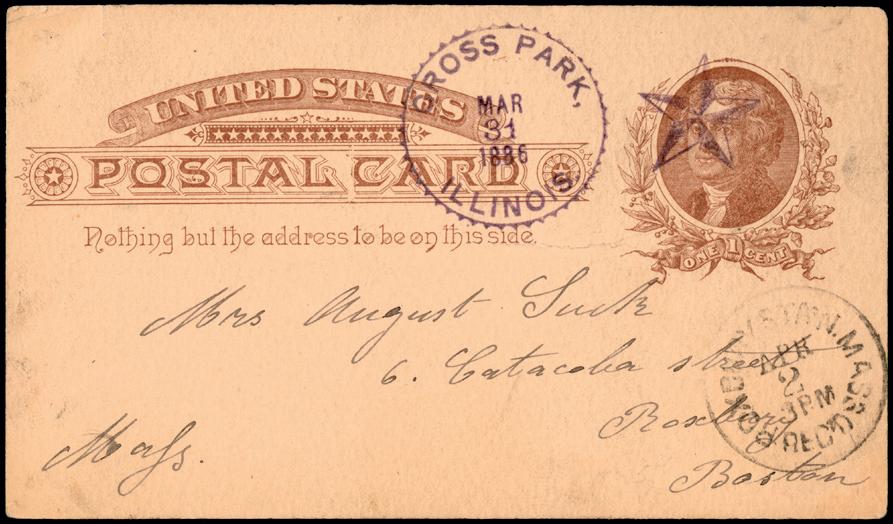 UNITED STATES
POSTAL CARD
Nothing but the address to be on this side.
GROSS PARK,
MAR
31
1886
ILLINOIS.
ONE 1 CENT
Mrs August Suck
6. Catacoba street
Roxbury
Mass.
Boston
STA'N. MASS.
APR
2
3 PM
REC'D